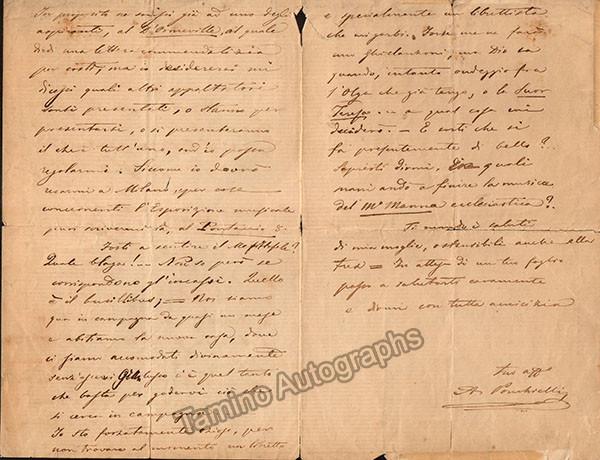 In proposito ne scrissi già ad uno degli
aspiranti, al D'Ormeville, al quale
diedi una lettera commendatizia
per costì, ma io desidererei mi
dicessi quali altri appaltatori
sonsi presentati, o stanno per
presentarsi, o si presenteranno
il che è tutt'uno, ond'io possa
regolarmi. Siccome io dovrò
recarmi a Milano, per cose
concernenti l'Esposizione musicale
puoi scrivermi là, al
Fosti a sentire il Mefistofele?
Quale blague!.. Non so però se
corrispondono gl'incassi. Quello
è il busillibus; = Noi siamo
qua in campagna da quasi un mese
e abitiamo la nuova casa, dove
ci siamo accomodati divinamente
senz'esservi gran lusso c'è quel tanto
che basta per godervi ciò che
si cerca in campagna.
Io sto forzatamente, per
non trovare al momento un libretto
e specialmente un librettista
che mi garbi. Forse me ne farà
uno Ghislanzoni, ma Dio sa
quando, intanto ondeggio fra
l'Olga che già tengo, e la Suor
Teresa... a qual cosa mi
deciderò. - E costì che si
fa presentemente di bello?..
Sapresti dirmi, in quali
mani andò a finire la musica
del M° Manna ecclesiastica?.
Ti mando i saluti
di mia moglie, estensibile anche alla
tua = In attesa di un tuo foglio
passo a salutarti caramente
e dirmi con tutta amicizia
tuo aff°
A. Ponchielli
Tamino Autographs